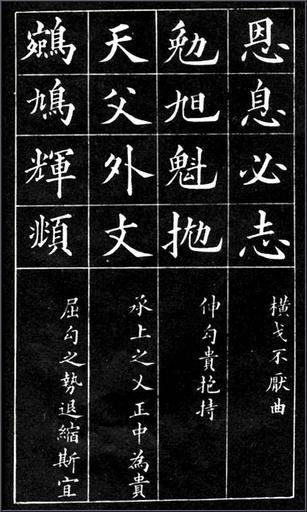 恩息必志
橫戈不厭曲
勉旭魁拋
伸勾貴抱持
天父外丈
承上之乂正中為貴
鵷鳩輝頫
屈勾之勢退縮斯宜